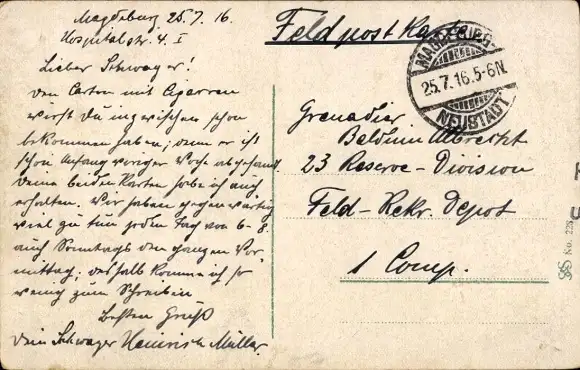 Magdeburg 25.7.16.
Hospitalstr. 4. I
Lieber Schwager!
Den Carton mit Cigarren
wirst Du inzwischen schon
bekommen haben, denn er ist
schon Anfang voriger Woche abgesandt.
Deine beiden Karten habe ich auch
erhalten. Wir haben gegenwärtig
viel zu tun jeden Tag von 6-8
auch Sonntags den ganzen Vor-
mittag, deshalb komme ich so
wenig zum Schreiben
Besten Gruß
Dein Schwager Heinrich Müller.
Feldpostkarte
MAGDEBURG-
25.7.16.5-6N.
NEUSTADT
Grenadier
Balduin Albrecht
23 Reserve-Division
Feld-Rekr. Depot
1 Comp.
No. 228